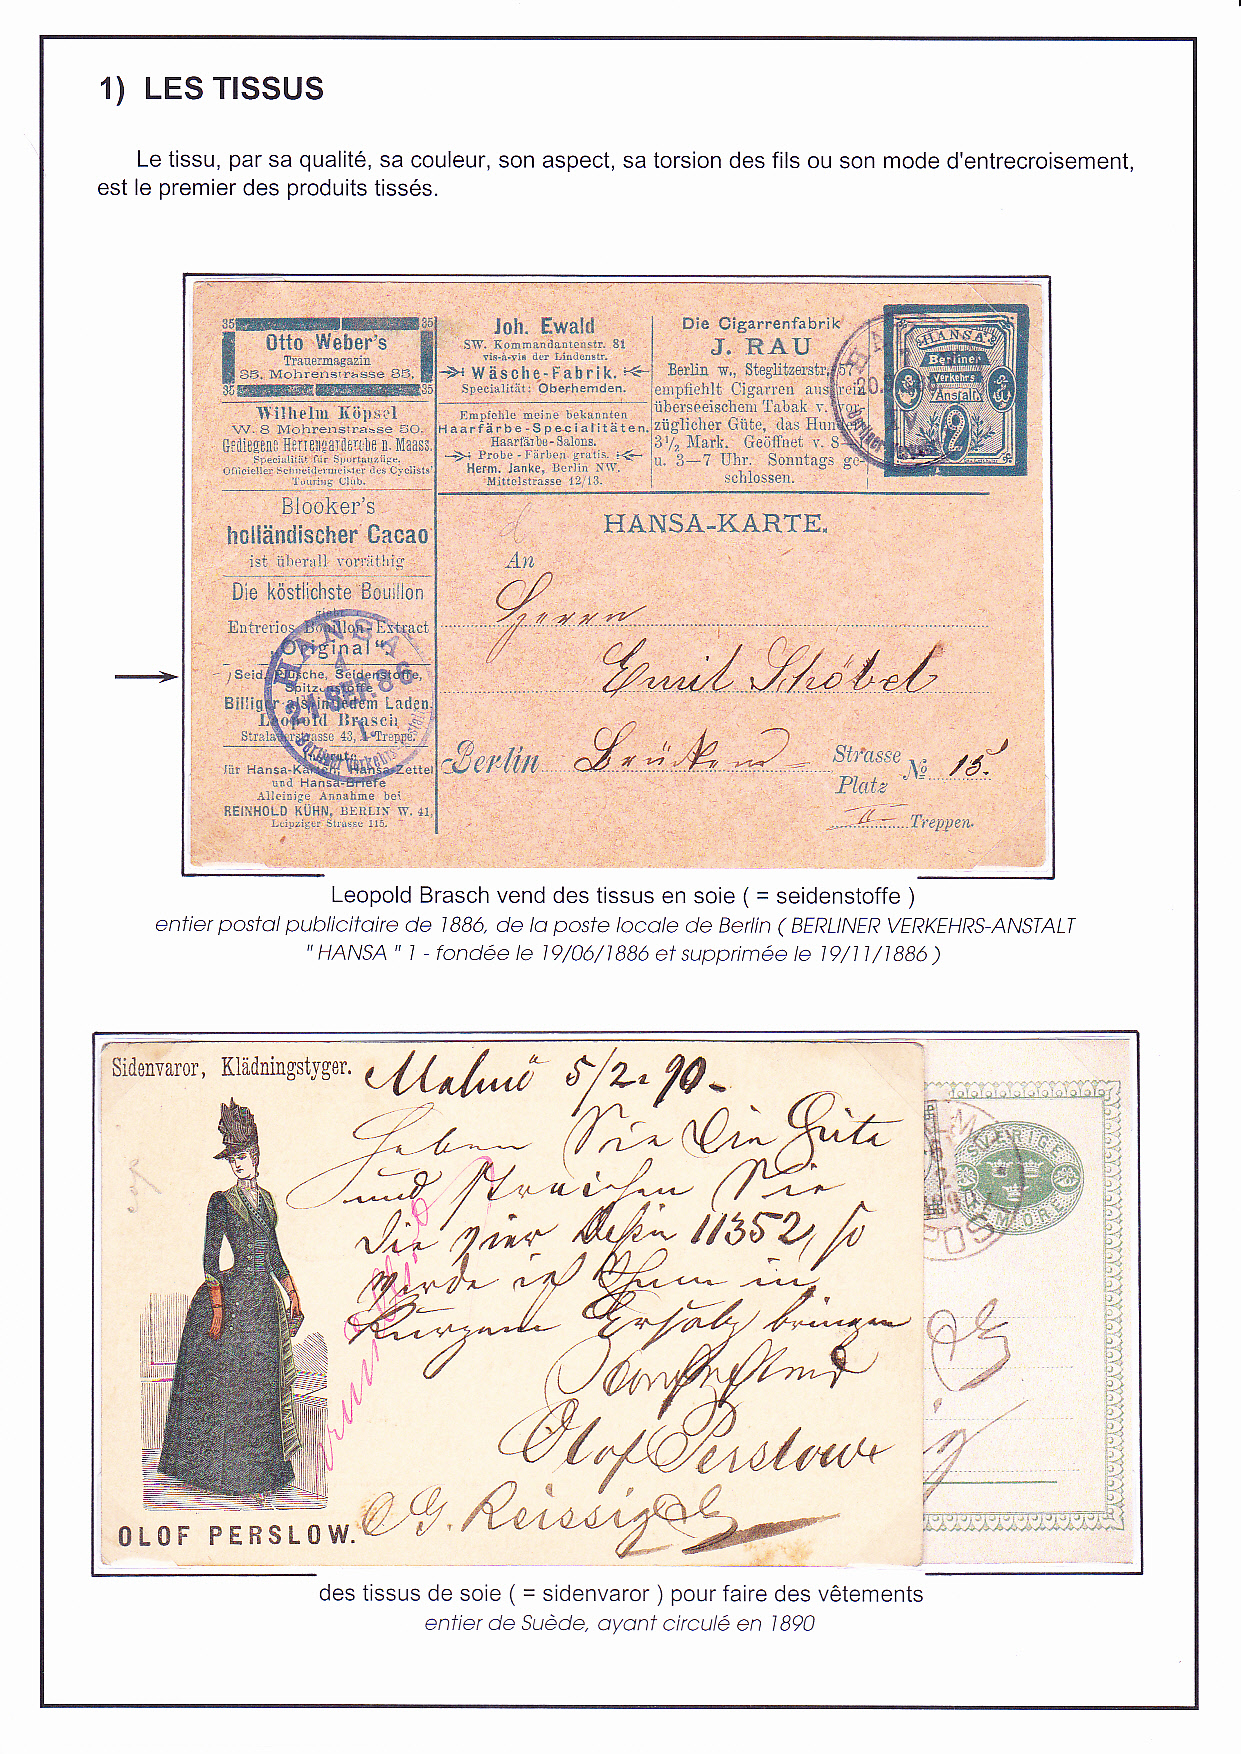 1) LES TISSUS
Le tissu, par sa qualité, sa couleur, son aspect, sa torsion des fils ou son mode d'entrecroisement,
est le premier des produits tissés.
35 35
Otto Weber's
Trauermagazin
35. Mohrenstrasse 35.
35 35
Wilhelm Köpsel
W. 8 Mohrenstrasse 50.
Gediegene Herrengarderobe n. Maass.
Specialität für Sportanzüge.
Officieller Schneidermeister des Cyclists'
Touring Club.
Blooker's
holländischer Cacao
ist überall vorräthig
Die köstlichste Bouillon
giebt
Entrerios Bouillon-Extract
„Original“.
Seid. Plüsche, Seidenstoffe,
Spitzenstoffe
Billiger als in jedem Laden.
Leopold Brasch
Stralauerstrasse 43, 1 Treppe.
Inserate
für Hansa-Karten, Hansa-Zettel
und Hansa-Briefe
Alleinige Annahme bei
REINHOLD KÜHN, BERLIN W. 41,
Leipziger Strasse 115.
Joh. Ewald
SW. Kommandantenstr. 81
vis-à-vis der Lindenstr.
Wäsche-Fabrik.
Specialität: Oberhemden.
Empfehle meine bekannten
Haarfärbe-Specialitäten.
Haarfärbe-Salons.
Probe-Färben gratis.
Herm. Janke, Berlin NW.
Mittelstrasse 12/13.
Die Cigarrenfabrik
J. RAU
Berlin w., Steglitzerstr. 57
empfiehlt Cigarren aus rein
überseeischem Tabak v. vor-
züglicher Güte, das Hundert
3½ Mark. Geöffnet v. 8-
u. 3—7 Uhr. Sonntags ge-
schlossen.
HANSA
Berliner
Verkehrs
Anstalt
2
HANSA-KARTE.
An
Herrn
Emil Schöbel
Berlin Brücken Strasse
Platz
No 15.
II Treppen.
HANSA
21 SEP. 86
Leopold Brasch vend des tissus en soie ( = seidenstoffe )
entier postal publicitaire de 1886, de la poste locale de Berlin ( BERLINER VERKEHRS-ANSTALT
" HANSA " 1 - fondée le 19/06/1886 et supprimée le 19/11/1886 )
Sidenvaror, Klädningstyger.
Malmö 5/2. 90.
Haben Sie die Güte
und streichen Sie
die vier Dessin 11352, so
werde ich Ihnen in
Kurzem Ersatz bringen
Olof Perslow
C. G. Reissig
OLOF PERSLOW.
SVERIGE
FEM ÖRE
des tissus de soie ( = sidenvaror ) pour faire des vêtements
entier de Suède, ayant circulé en 1890